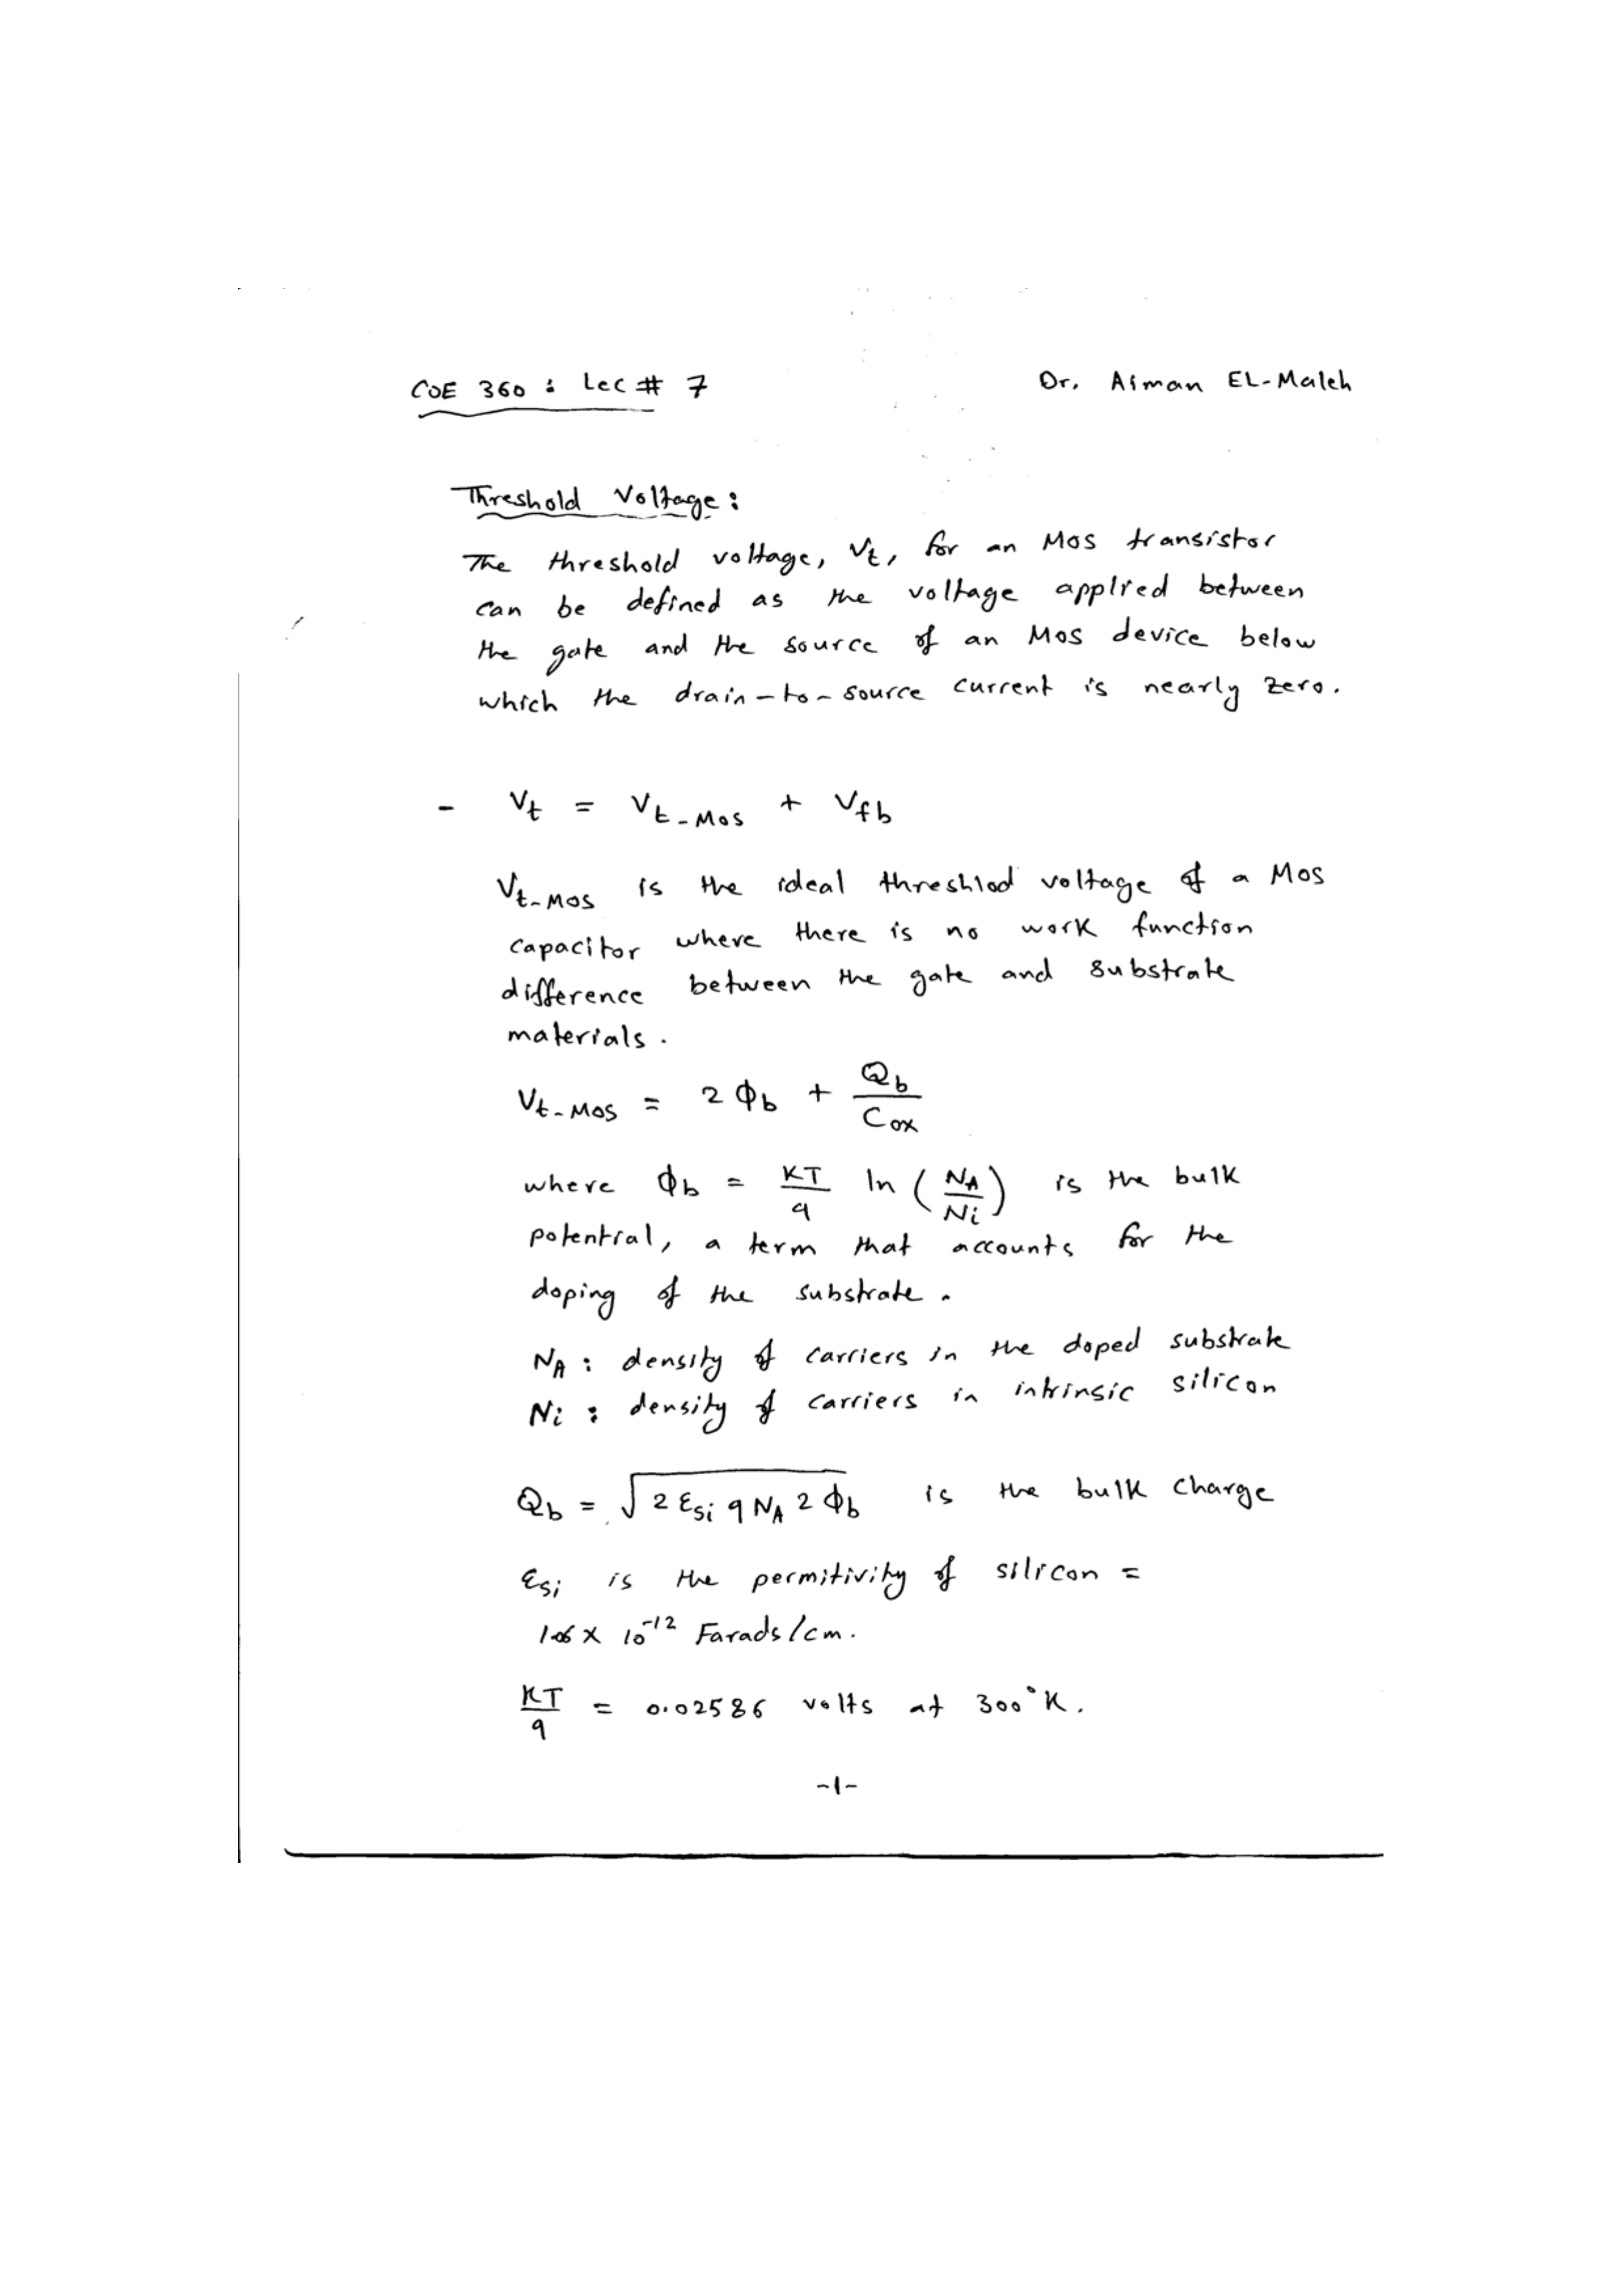 COE 360 : Lec # 7 Dr. Aiman EL-Maleh
Threshold Voltage :
The threshold voltage, Vt, for an MOS transistor
can be defined as the voltage applied between
the gate and the source of an MOS device below
which the drain-to-source current is nearly zero.
- Vt = Vt-MOS + Vfb
Vt-MOS is the ideal threshlod voltage of a MOS
capacitor where there is no work function
difference between the gate and substrate
materials.
Vt-MOS = 2 Φb + Qb / Cox
where Φb = KT/q ln (NA/Ni) is the bulk
potential, a term that accounts for the
doping of the substrate.
NA : density of carriers in the doped substrate
Ni : density of carriers in intrinsic silicon
Qb = √(2 εsi q NA 2 Φb) is the bulk charge
εsi is the permitivity of silicon =
1.06 x 10^-12 Farads/cm.
KT/q = 0.02586 volts at 300°K.
-1-